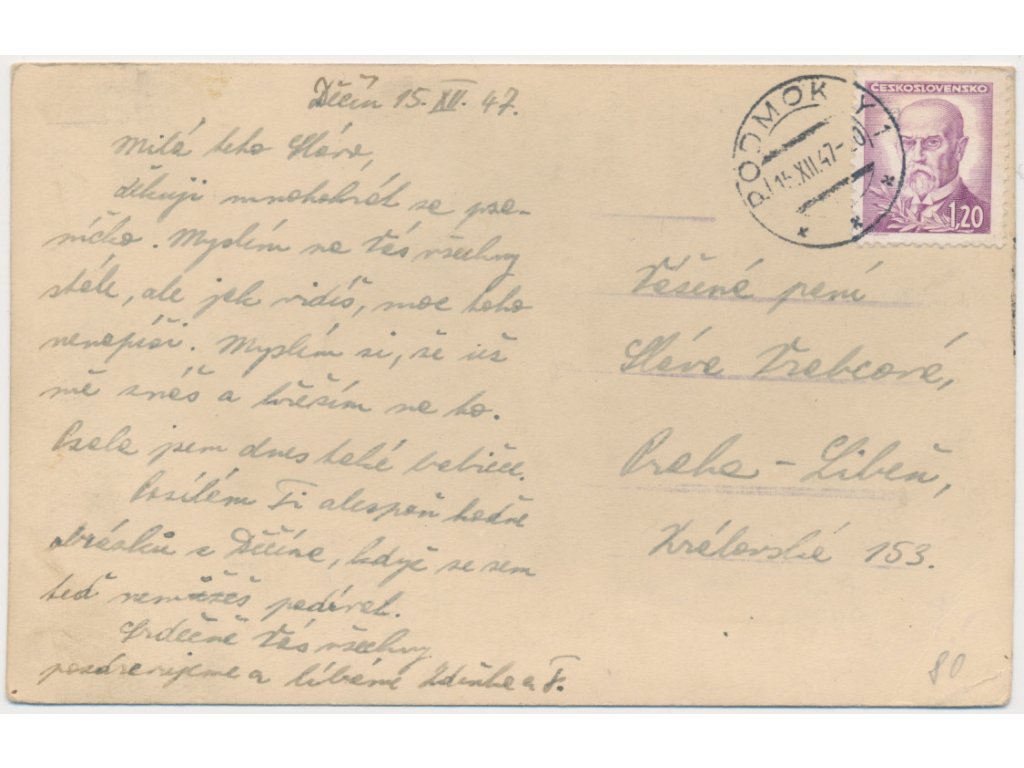 Děčín 15. XII. 47.
Milá teto Slávo,
děkuji mnohokrát za psa-
níčko. Myslím na Vás všechny
stále, ale jak vidíš, moc toho
nenapíši. Myslím si, že už
mě znáš a hřeším na to.
Psala jsem dnes také babičce.
Posílám Ti alespoň hodně
obrázků z Děčína, když se sem
teď nemůžeš podívat.
Srdečně Vás všechny
pozdravujeme a líbáme Zdeňka a F.
PODMOKLY 1
15.XII.47
ČESKOSLOVENSKO
1,20
Vážená paní
Sláva Vrabcová,
Praha - Libeň,
Královská 153.
80